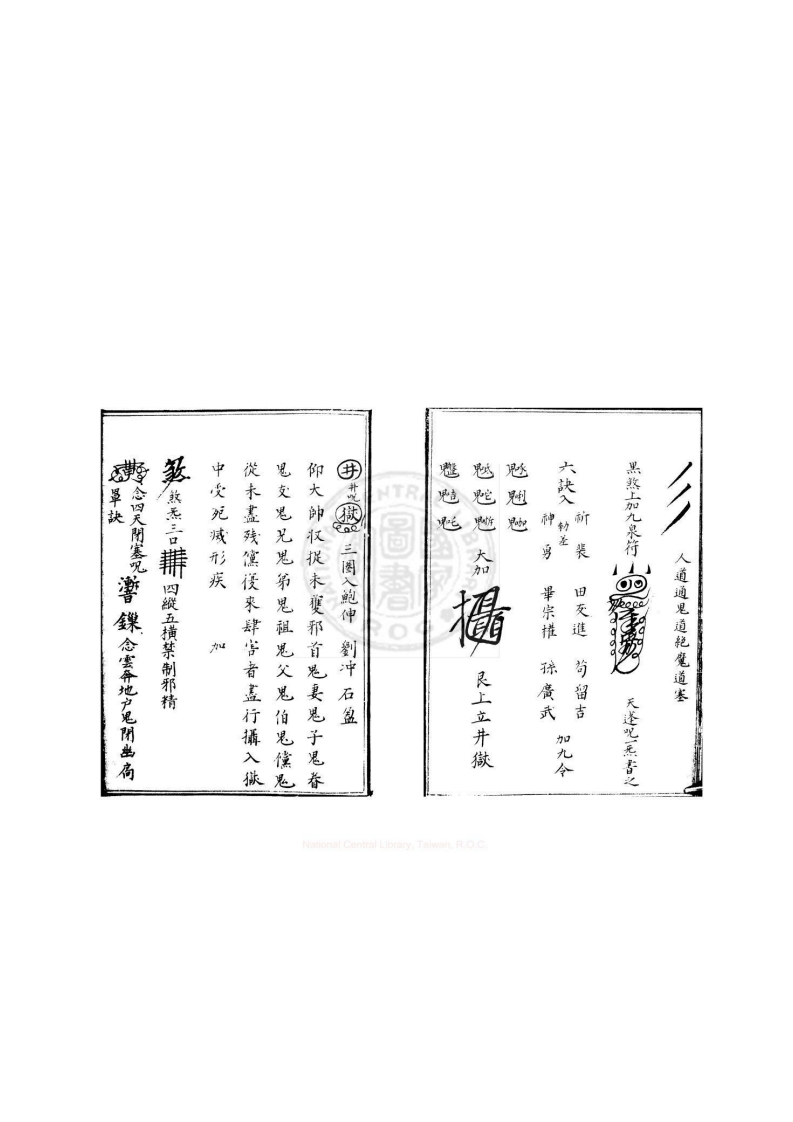 人道通鬼道絕魔道塞
黑煞上加九泉符 天蓬呪一炁書之
祈裴 田交進 茍留吉
六訣入 勅差 加九令
神勇 畢宗權 孫廣武
大加 攝 艮上立井獄
井 井呪 獄 三圈入鮑伸 劉冲 石盈
仰大帥収捉未獲邪首鬼妻鬼子鬼眷
鬼友鬼兄鬼弟鬼祖鬼父鬼伯鬼儻鬼
從未盡殘儻後來肆害者盡行攝入獄
中受死滅形疾 加
煞 煞炁三口 四縱五橫禁制邪精
念四天閉塞呪 鑠 念雲奔地户鬼閉幽局
單訣
National Central Library, Taiwan, R.O.C.